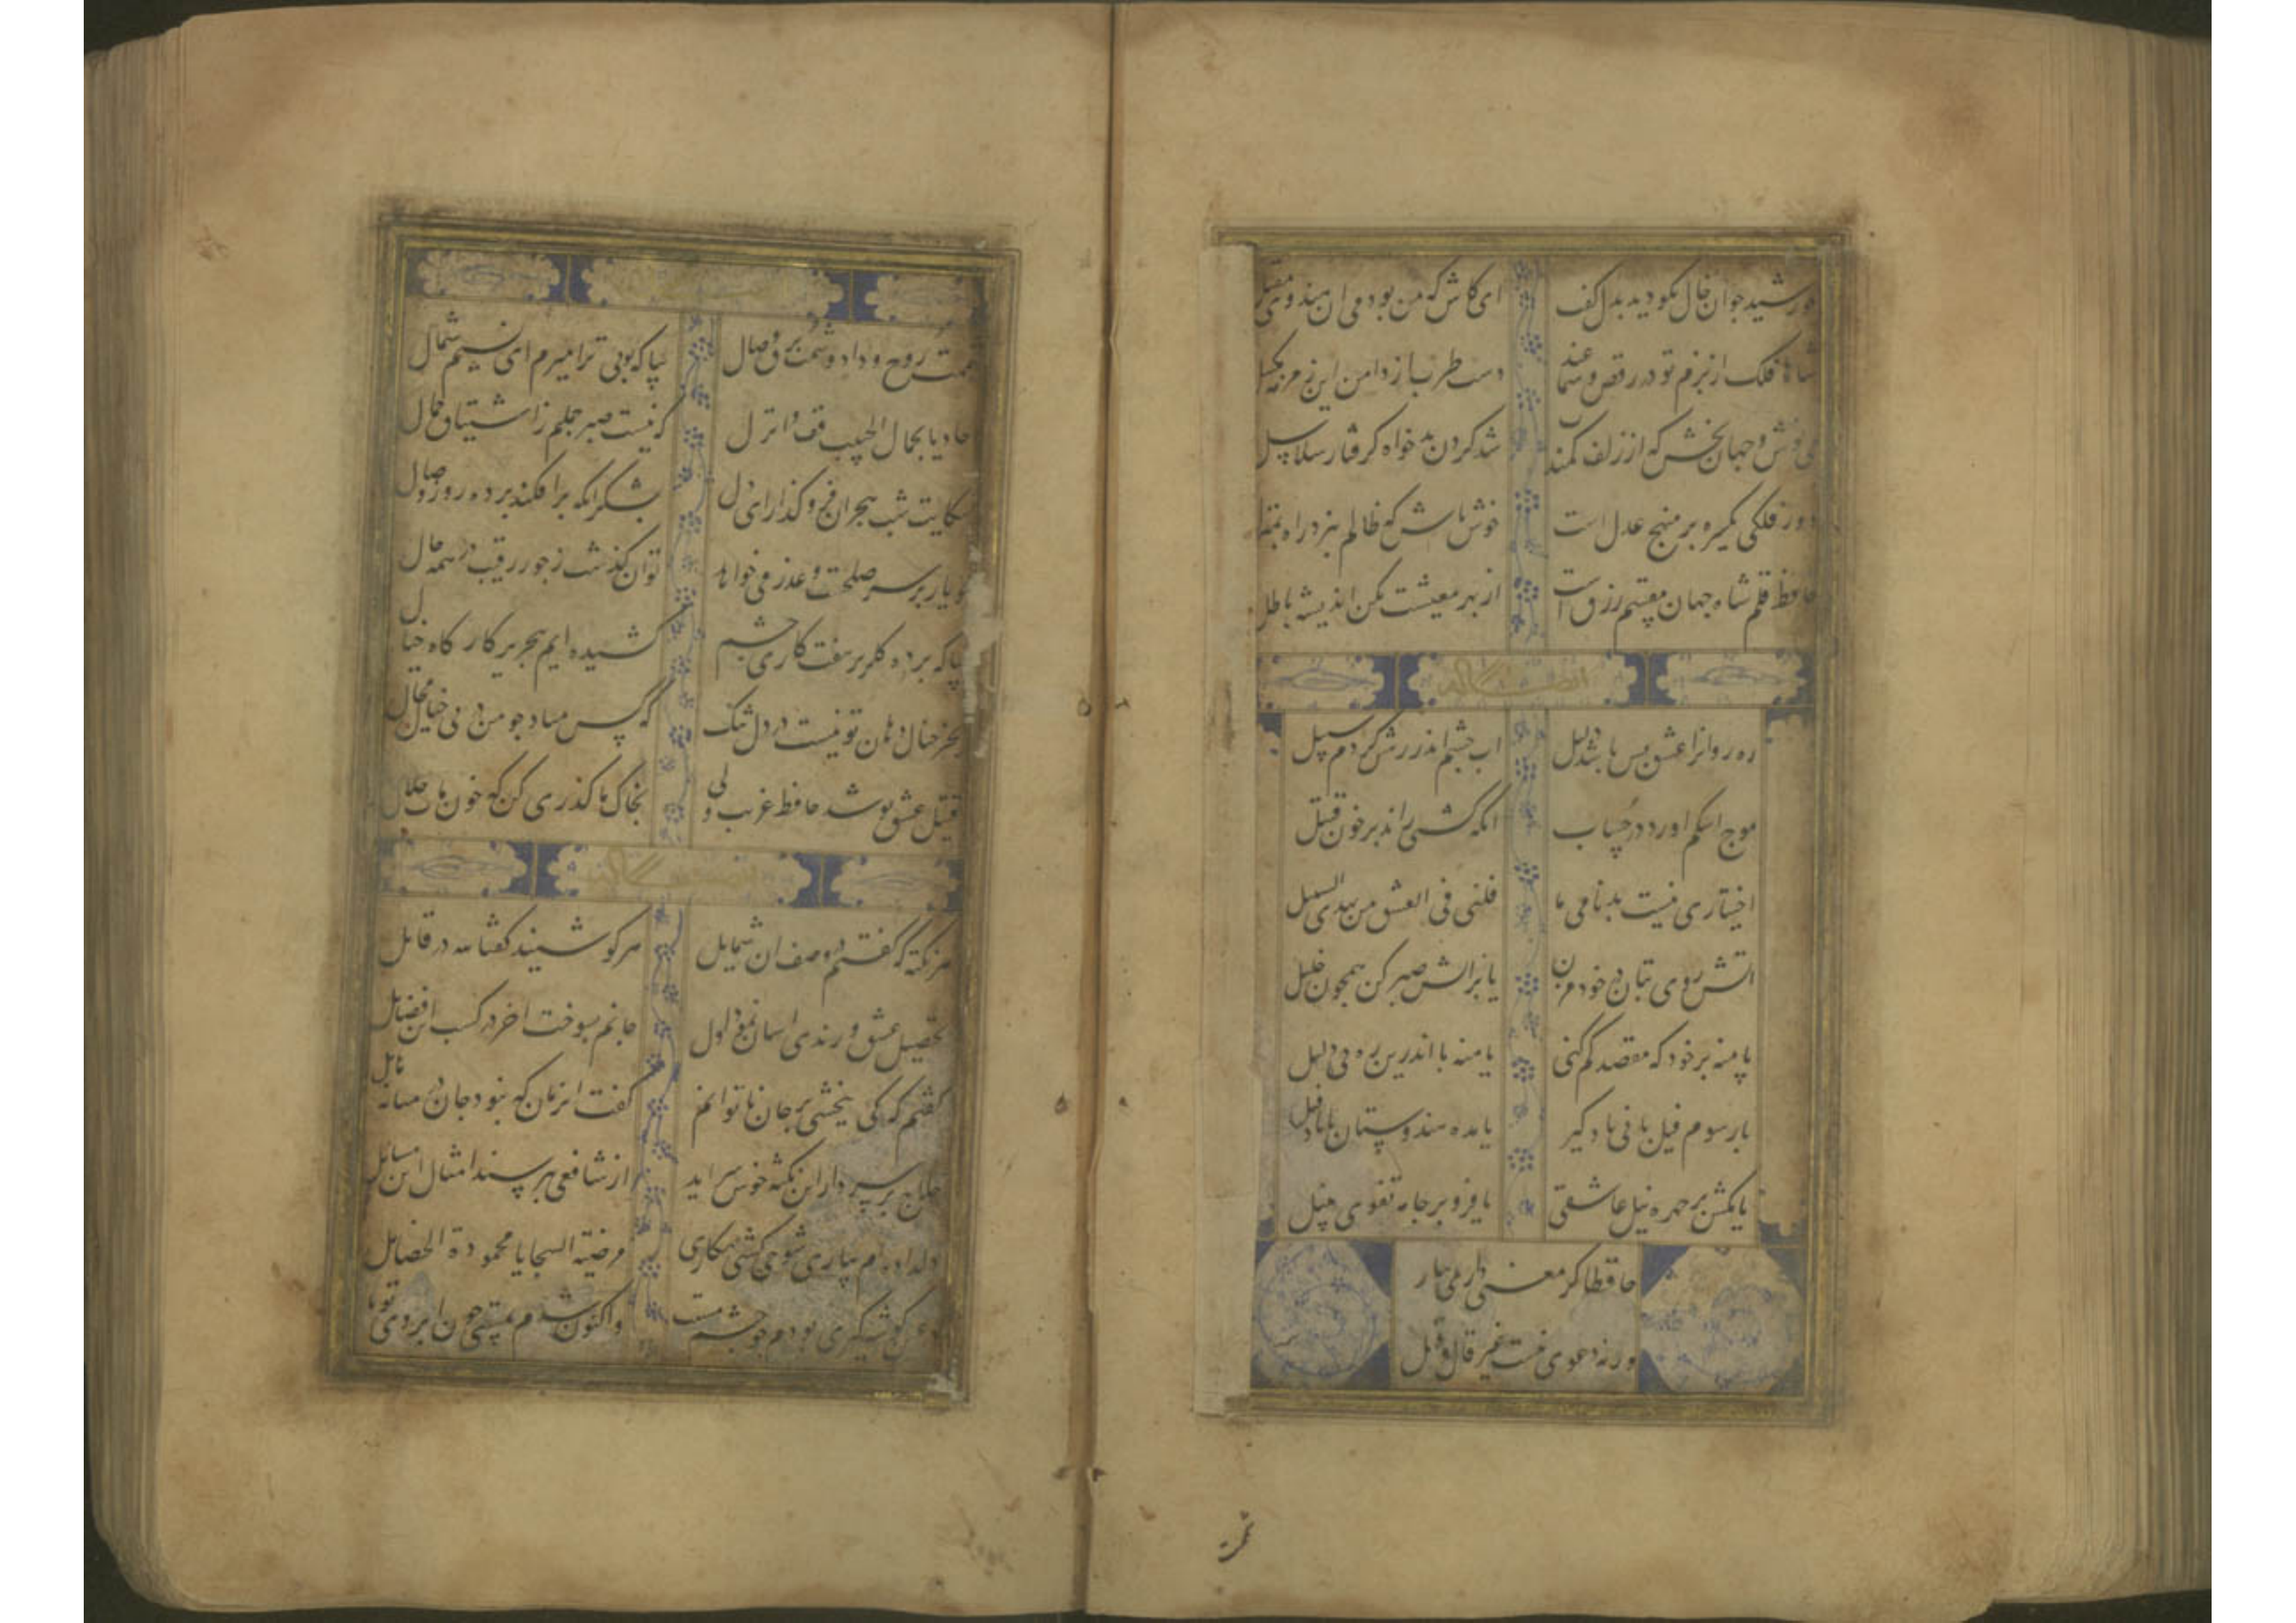 خورشید جوان خال نکو دید بدل کف
ای کاش که من بودمی ان هندوی مقبل
شاها فلک از بزم تو در رقص و سماعند
دست طرب باز دامن این زمزمه
می نوش و جهان بخش که از زلف کمند
شد کردن بدخواه کرفتار سلاسل
دور فلکی یکسره بر منهج عدل است
خوش باش که ظالم نبرد راه بمنزل
حافظ قلم شاه جهان مقسم رزق است
از بهر معیشت مکن اندیشه باطل
ره روانرا عشق بس باشد دلیل
اب چشم اندر رهش کردم سبیل
موج اشکم اورد در حساب
انکه کشتی راند بر خون قتیل
اختیاری نیست بدنامی ما
ضلنی فی العشق من یهدی السبیل
اتش روی بتان در خود مزن
یا بر اتش صبر کن همچون خلیل
یا منه بر خود که مقصد کم کنی
یا منه پا اندرین ره بی دلیل
یا رسوم فیل بانی یاد گیر
یا مده هندوستان با یاد فیل
یا مکش بر چهره نیل عاشقی
یا فرو بر جامه تقوی بنیل
حافظا کر معنی داری بیار
ورنه دعوی نیست غیر قال و قیل
شممت روح وداد و شمت برق وصال
بیا که بوی ترا میرم ای نسیم شمال
حادیا بجمال الحبیب قف وانزل
که نیست صبر جمیلم ز اشتیاق جمال
شکایت شب هجران فرو کذار ای دل
بشکر انکه برافکند پرده روز وصال
چو یار بر سر صلحست و عذر می خواهد
توان کذشت ز جور رقیب در همه حال
بیا که پرده کلریز هفت کاری چشم
کشیده ایم بتحریر کارکاه خیال
بجز خیال دهان تو نیست در دل تنک
که کس مباد چو من در پی خیال محال
قتیل عشق تو شد حافظ غریب ولی
بخاک ما کذری کن که خون مات حلال
هر نکته که کفتم در وصف ان شمایل
هر کو شنید کفتا لله در قائل
تحصیل عشق و رندی اسان نمود اول
جانم بسوخت اخر در کسب این فضایل
کفتم که کی ببخشی بر جان ناتوانم
کفت انزمان که نبود جان در میانه حایل
حلاج بر سر دار این نکته خوش سراید
از شافعی نپرسند امثال این مسایل
دلداده ام بیاری شوخی کشی نکاری
مرضیة السجایا محمودة الخصایل
در عین کوشه کیری بودم چو چشم مست
واکنون شدم بمستی چون ابروی تو مایل